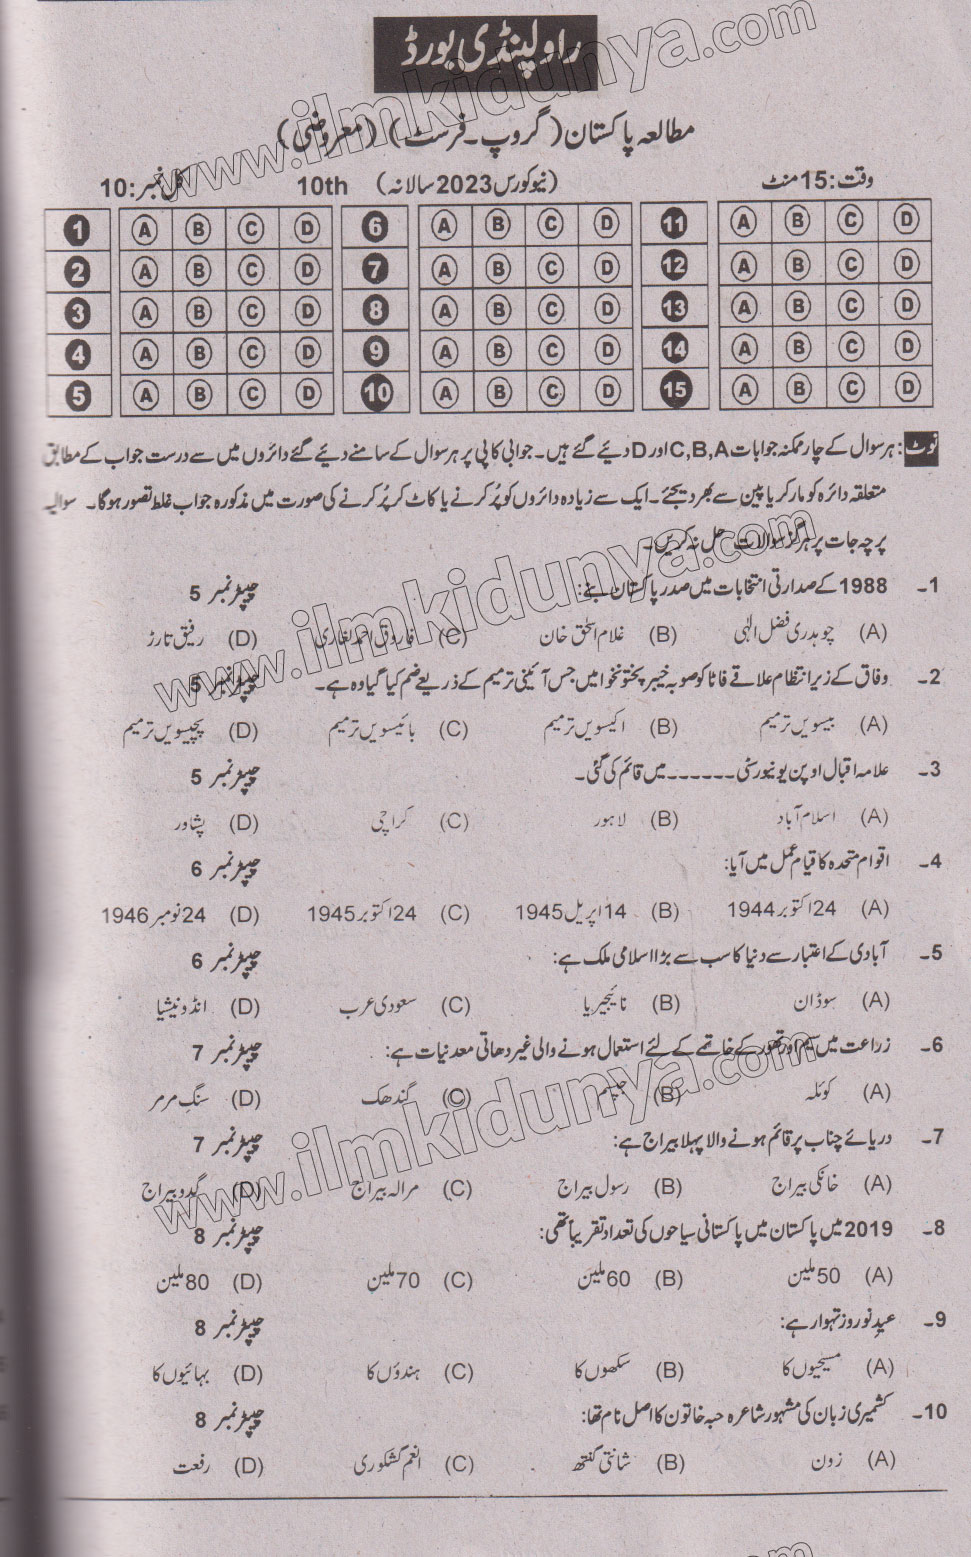 راولپنڈی بورڈ
مطالعہ پاکستان (گروپ۔ فرسٹ) (معروضی)
وقت: 15 منٹ (نیو کورس 2023 سالانہ) 10th کل نمبر: 10
1 A B C D 6 A B C D 11 A B C D
2 A B C D 7 A B C D 12 A B C D
3 A B C D 8 A B C D 13 A B C D
4 A B C D 9 A B C D 14 A B C D
5 A B C D 10 A B C D 15 A B C D
نوٹ: ہر سوال کے چار ممکنہ جوابات C,B,A اور D دیئے گئے ہیں۔ جوابی کاپی پر ہر سوال کے سامنے دیئے گئے دائروں میں سے درست جواب کے مطابق
متعلقہ دائرہ کو مارکر یا پین سے بھر دیجئے۔ ایک سے زیادہ دائروں کو پُر کرنے یا کاٹ کر پُر کرنے کی صورت میں مذکورہ جواب غلط تصور ہوگا۔ سوالیہ
پرچہ جات پر ہرگز سوالات حل نہ کریں۔
1۔ 1988 کے صدارتی انتخابات میں صدر پاکستان بنے: چیپٹر نمبر 5
(A) چوہدری فضل الٰہی (B) غلام اسحٰق خان (C) فاروق احمد لغاری (D) رفیق تارڑ
2۔ وفاق کے زیر انتظام علاقے فاٹا کو صوبہ خیبر پختونخوا میں جس آئینی ترمیم کے ذریعے ضم کیا گیا وہ ہے۔ چیپٹر نمبر 5
(A) بیسویں ترمیم (B) اکیسویں ترمیم (C) بائیسویں ترمیم (D) پچیسویں ترمیم
3۔ علامہ اقبال اوپن یونیورسٹی ۔۔۔۔۔۔ میں قائم کی گئی۔ چیپٹر نمبر 5
(A) اسلام آباد (B) لاہور (C) کراچی (D) پشاور
4۔ اقوام متحدہ کا قیام عمل میں آیا: چیپٹر نمبر 6
(A) 24 اکتوبر 1944 (B) 14 اپریل 1945 (C) 24 اکتوبر 1945 (D) 24 نومبر 1946
5۔ آبادی کے اعتبار سے دنیا کا سب سے بڑا اسلامی ملک ہے: چیپٹر نمبر 6
(A) سوڈان (B) نائیجیریا (C) سعودی عرب (D) انڈونیشیا
6۔ زراعت میں سیم اور تھور کے خاتمے کے لئے استعمال ہونے والی غیر دھاتی معدنیات ہے: چیپٹر نمبر 7
(A) کوئلہ (B) جپسم (C) گندھک (D) سنگِ مرمر
7۔ دریائے چناب پر قائم ہونے والا پہلا بیراج ہے: چیپٹر نمبر 7
(A) خانکی بیراج (B) رسول بیراج (C) مرالہ بیراج (D) گدو بیراج
8۔ 2019 میں پاکستان میں پاکستانی سیاحوں کی تعداد تقریباً تھی: چیپٹر نمبر 8
(A) 50 ملین (B) 60 ملین (C) 70 ملین (D) 80 ملین
9۔ عیدِ نوروز تہوار ہے: چیپٹر نمبر 8
(A) مسیحیوں کا (B) سکھوں کا (C) ہندوؤں کا (D) بہائیوں کا
10۔ کشمیری زبان کی مشہور شاعرہ حبہ خاتون کا اصل نام تھا: چیپٹر نمبر 8
(A) زون (B) شانتی گفتھ (C) انعم گشکوری (D) رفعت
www.ilmkidunya.com
www.ilmkidunya.com
www.ilmkidunya.com